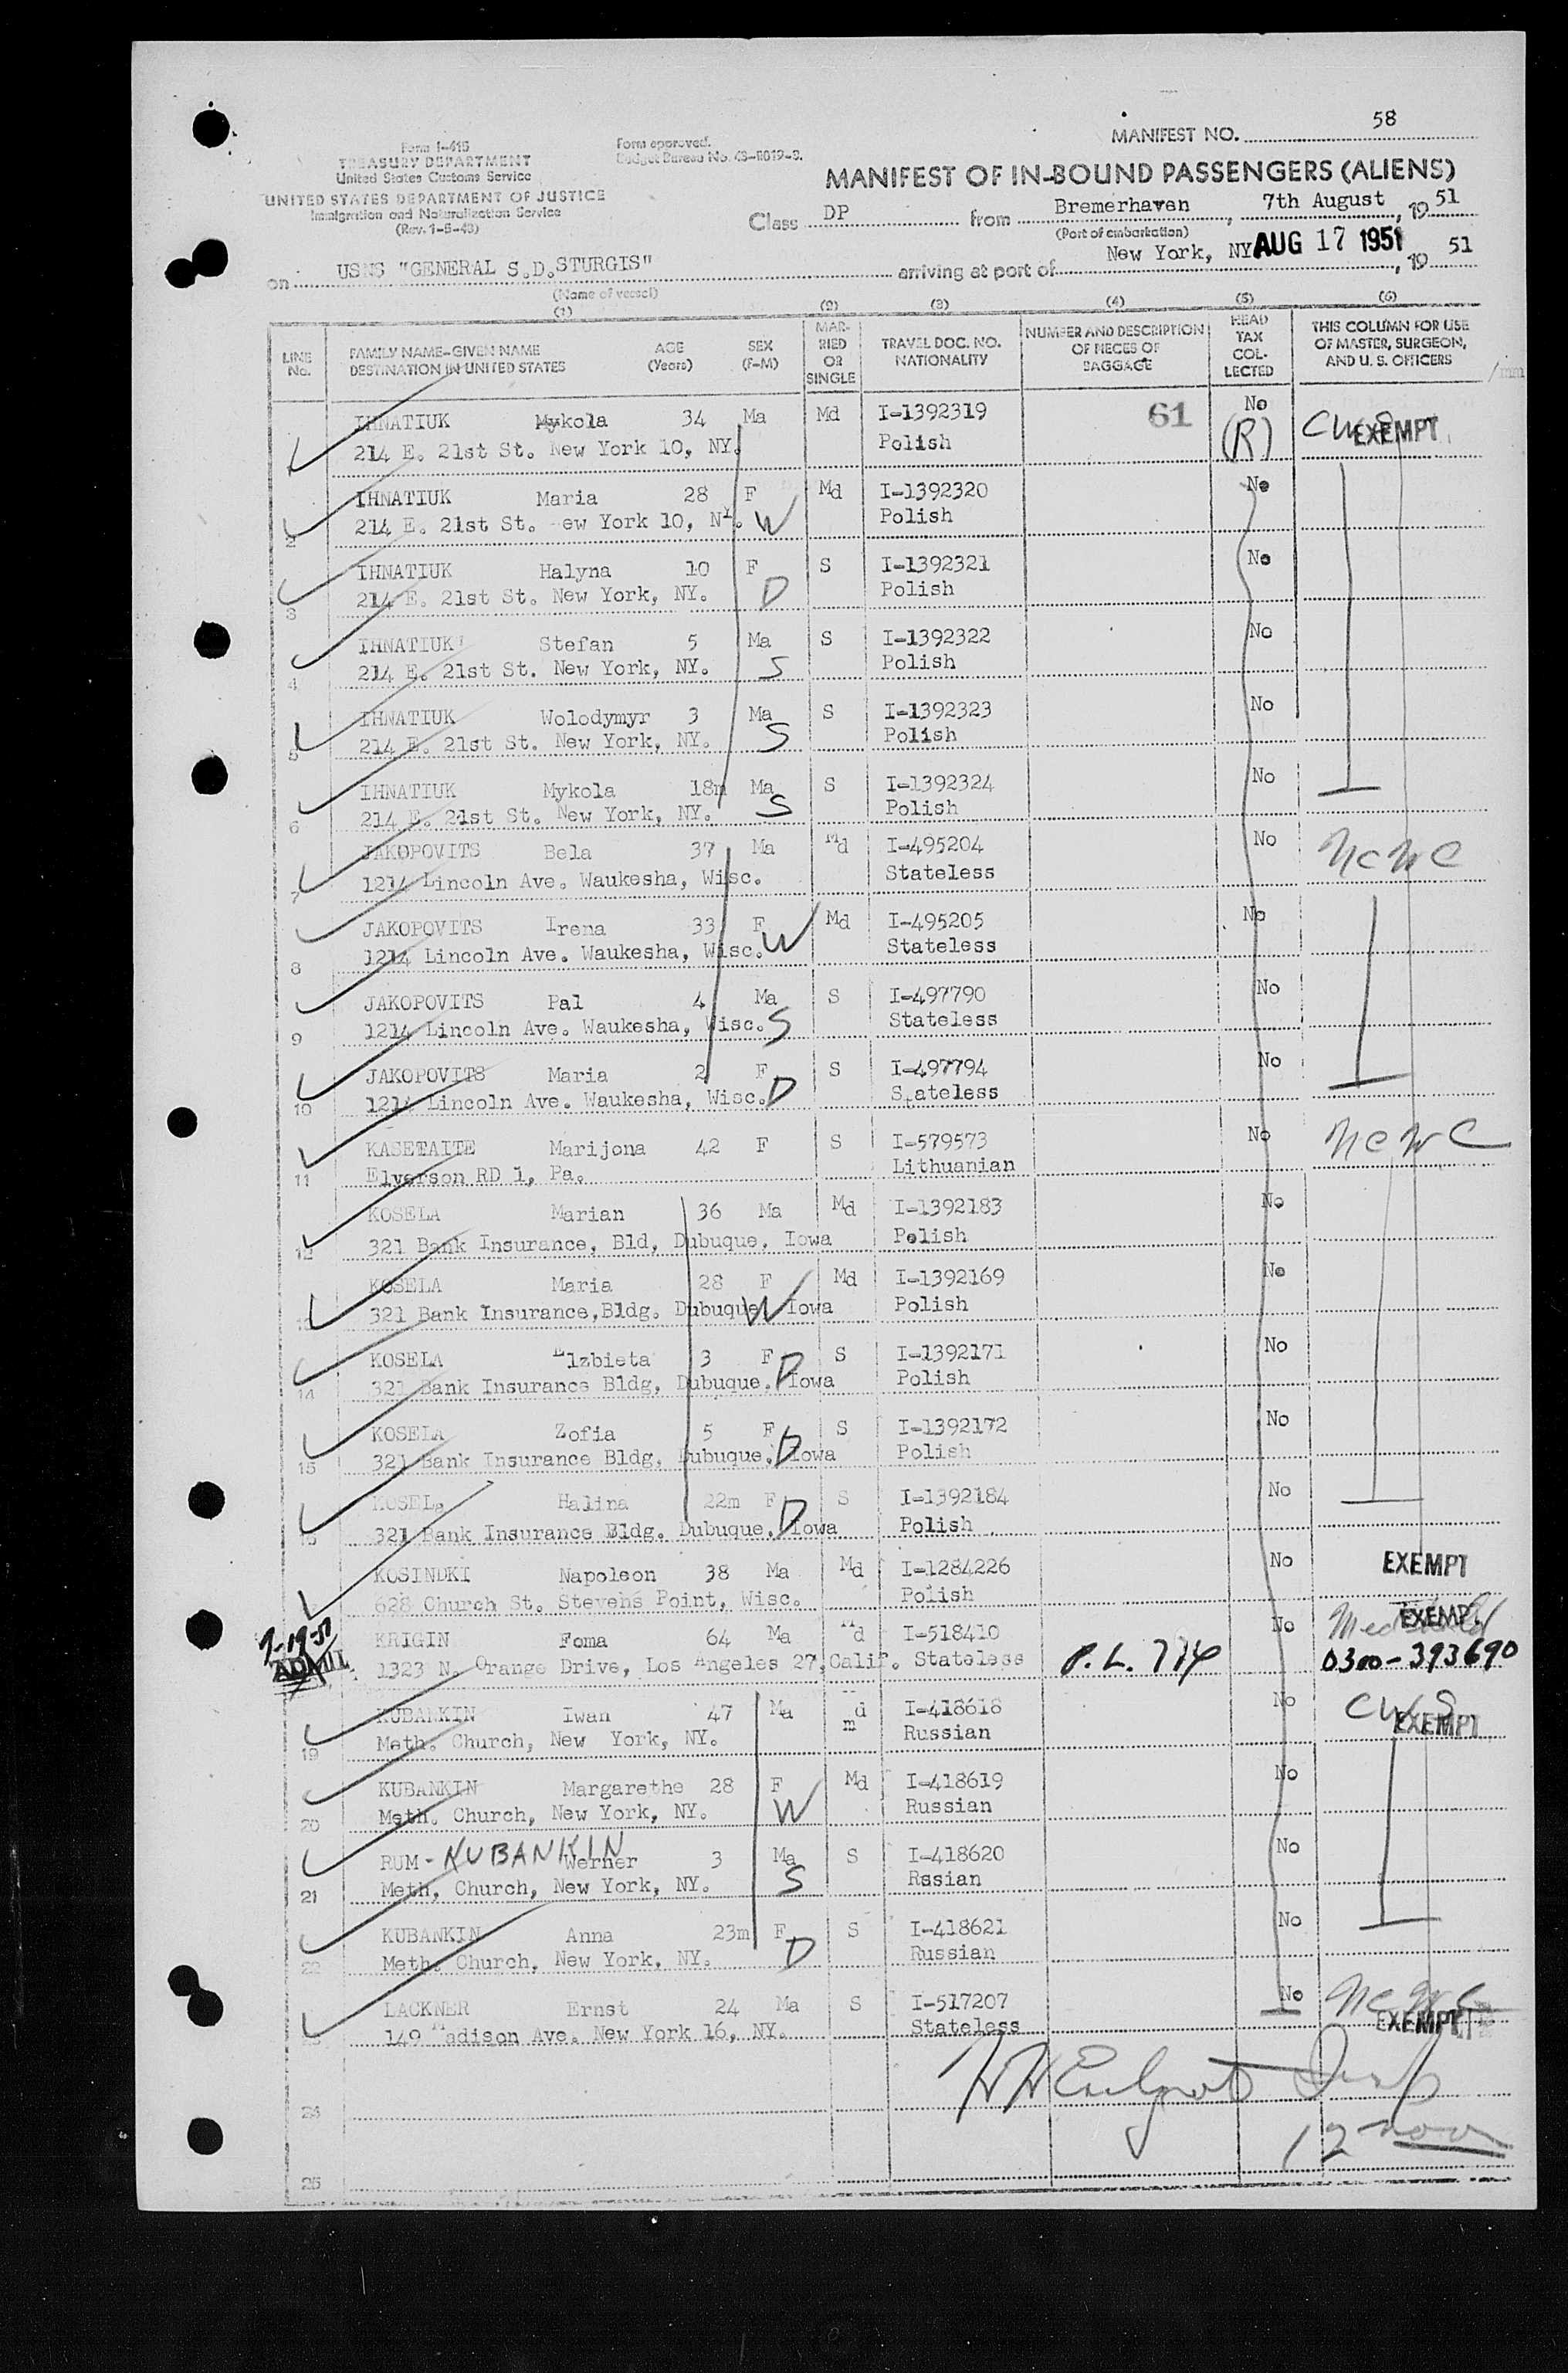 58
MANIFEST NO.
Form I-415
TREASURY DEPARTMENT
United States Customs Service
UNITED STATES DEPARTMENT OF JUSTICE
Immigration and Naturalization Service
(Rev. 1-5-48)
Form approved.
Budget Bureau No. 43-R019-3.
MANIFEST OF IN-BOUND PASSENGERS (ALIENS)
Class DP from Bremerhaven, 7th August, 19 51
(Port of embarkation)
on USNS "GENERAL S.D.STURGIS" arriving at port of New York, NY AUG 17 1951, 19 51
(Name of vessel)
(1) (2) (3) (4) (5) (6)
LINE No. FAMILY NAME-GIVEN NAME DESTINATION IN UNITED STATES AGE (Years) SEX (F-M) MARRIED OR SINGLE TRAVEL DOC. NO. NATIONALITY NUMBER AND DESCRIPTION OF PIECES OF BAGGAGE HEAD TAX COLLECTED THIS COLUMN FOR USE OF MASTER, SURGEON, AND U. S. OFFICERS
IHNATIUK Mykola 34 Ma Md I-1392319 61 No (R) CWS EXEMPT
214 E. 21st St. New York 10, NY. Polish
2 IHNATIUK Maria 28 F Md I-1392320 No
214 E. 21st St. ew York 10, NY. W Polish
3 IHNATIUK Halyna 10 F S I-1392321 No
214 E. 21st St. New York, NY. D Polish
4 IHNATIUK Stefan 5 Ma S I-1392322 No
214 E. 21st St. New York, NY. S Polish
5 IHNATIUK Wolodymyr 3 Ma S I-1392323 No
214 E. 21st St. New York, NY. S Polish
6 IHNATIUK Mykola 18m Ma S I-1392324 No
214 E. 21st St. New York, NY. S Polish
7 JAKOPOVITS Bela 37 Ma Md I-495204 No NCWC
1214 Lincoln Ave. Waukesha, Wisc. Stateless
8 JAKOPOVITS Irena 33 F W Md I-495205 No
1214 Lincoln Ave. Waukesha, Wisc. Stateless
9 JAKOPOVITS Pal 4 Ma S I-497790 No
1214 Lincoln Ave. Waukesha, Wisc. S Stateless
10 JAKOPOVITS Maria 2 F S I-497794 No
1214 Lincoln Ave. Waukesha, Wisc. D Stateless
11 KASETAITE Marijona 42 F S I-579573 No NCWC
Elverson RD 1, Pa. Lithuanian
12 KOSELA Marian 36 Ma Md I-1392183 No
321 Bank Insurance, Bld, Dubuque, Iowa Polish
13 KOSELA Maria 28 F Md I-1392169 No
321 Bank Insurance,Bldg. Dubuque, W Iowa Polish
14 KOSELA Elzbieta 3 F D S I-1392171 No
321 Bank Insurance Bldg, Dubuque. Iowa Polish
15 KOSELA Zofia 5 F D S I-1392172 No
321 Bank Insurance Bldg, Dubuque. Iowa Polish
KOSELa Halina 22m F D S I-1392184 No
321 Bank Insurance Bldg. Dubuque. Iowa Polish
KOSINDKI Napoleon 38 Ma Md I-1284226 No EXEMPT
628 Church St. Stevens Point, Wisc. Polish
KRIGIN Foma 64 Ma Md I-518410 No Med Held EXEMPT
ADMIL 1323 N. Orange Drive, Los Angeles 27,Calif. Stateless P.L. 774 0300-393690
19 KUBANKIN Iwan 47 Ma Md m I-418618 No CWS EXEMPT
Meth. Church, New York, NY. Russian
20 KUBANKIN Margarethe 28 F Md I-418619 No
Meth. Church, New York, NY. W Russian
21 RUM-KUBANKIN Werner 3 Ma S I-418620 No
Meth, Church, New York, NY. S Rssian
22 KUBANKIN Anna 23m F S I-418621 No
Meth. Church, New York, NY. D Russian
LACKNER Ernst 24 Ma S I-517207 No NCWC EXEMPT
149 Madison Ave. New York 16, NY. Stateless
24
12 noon
25